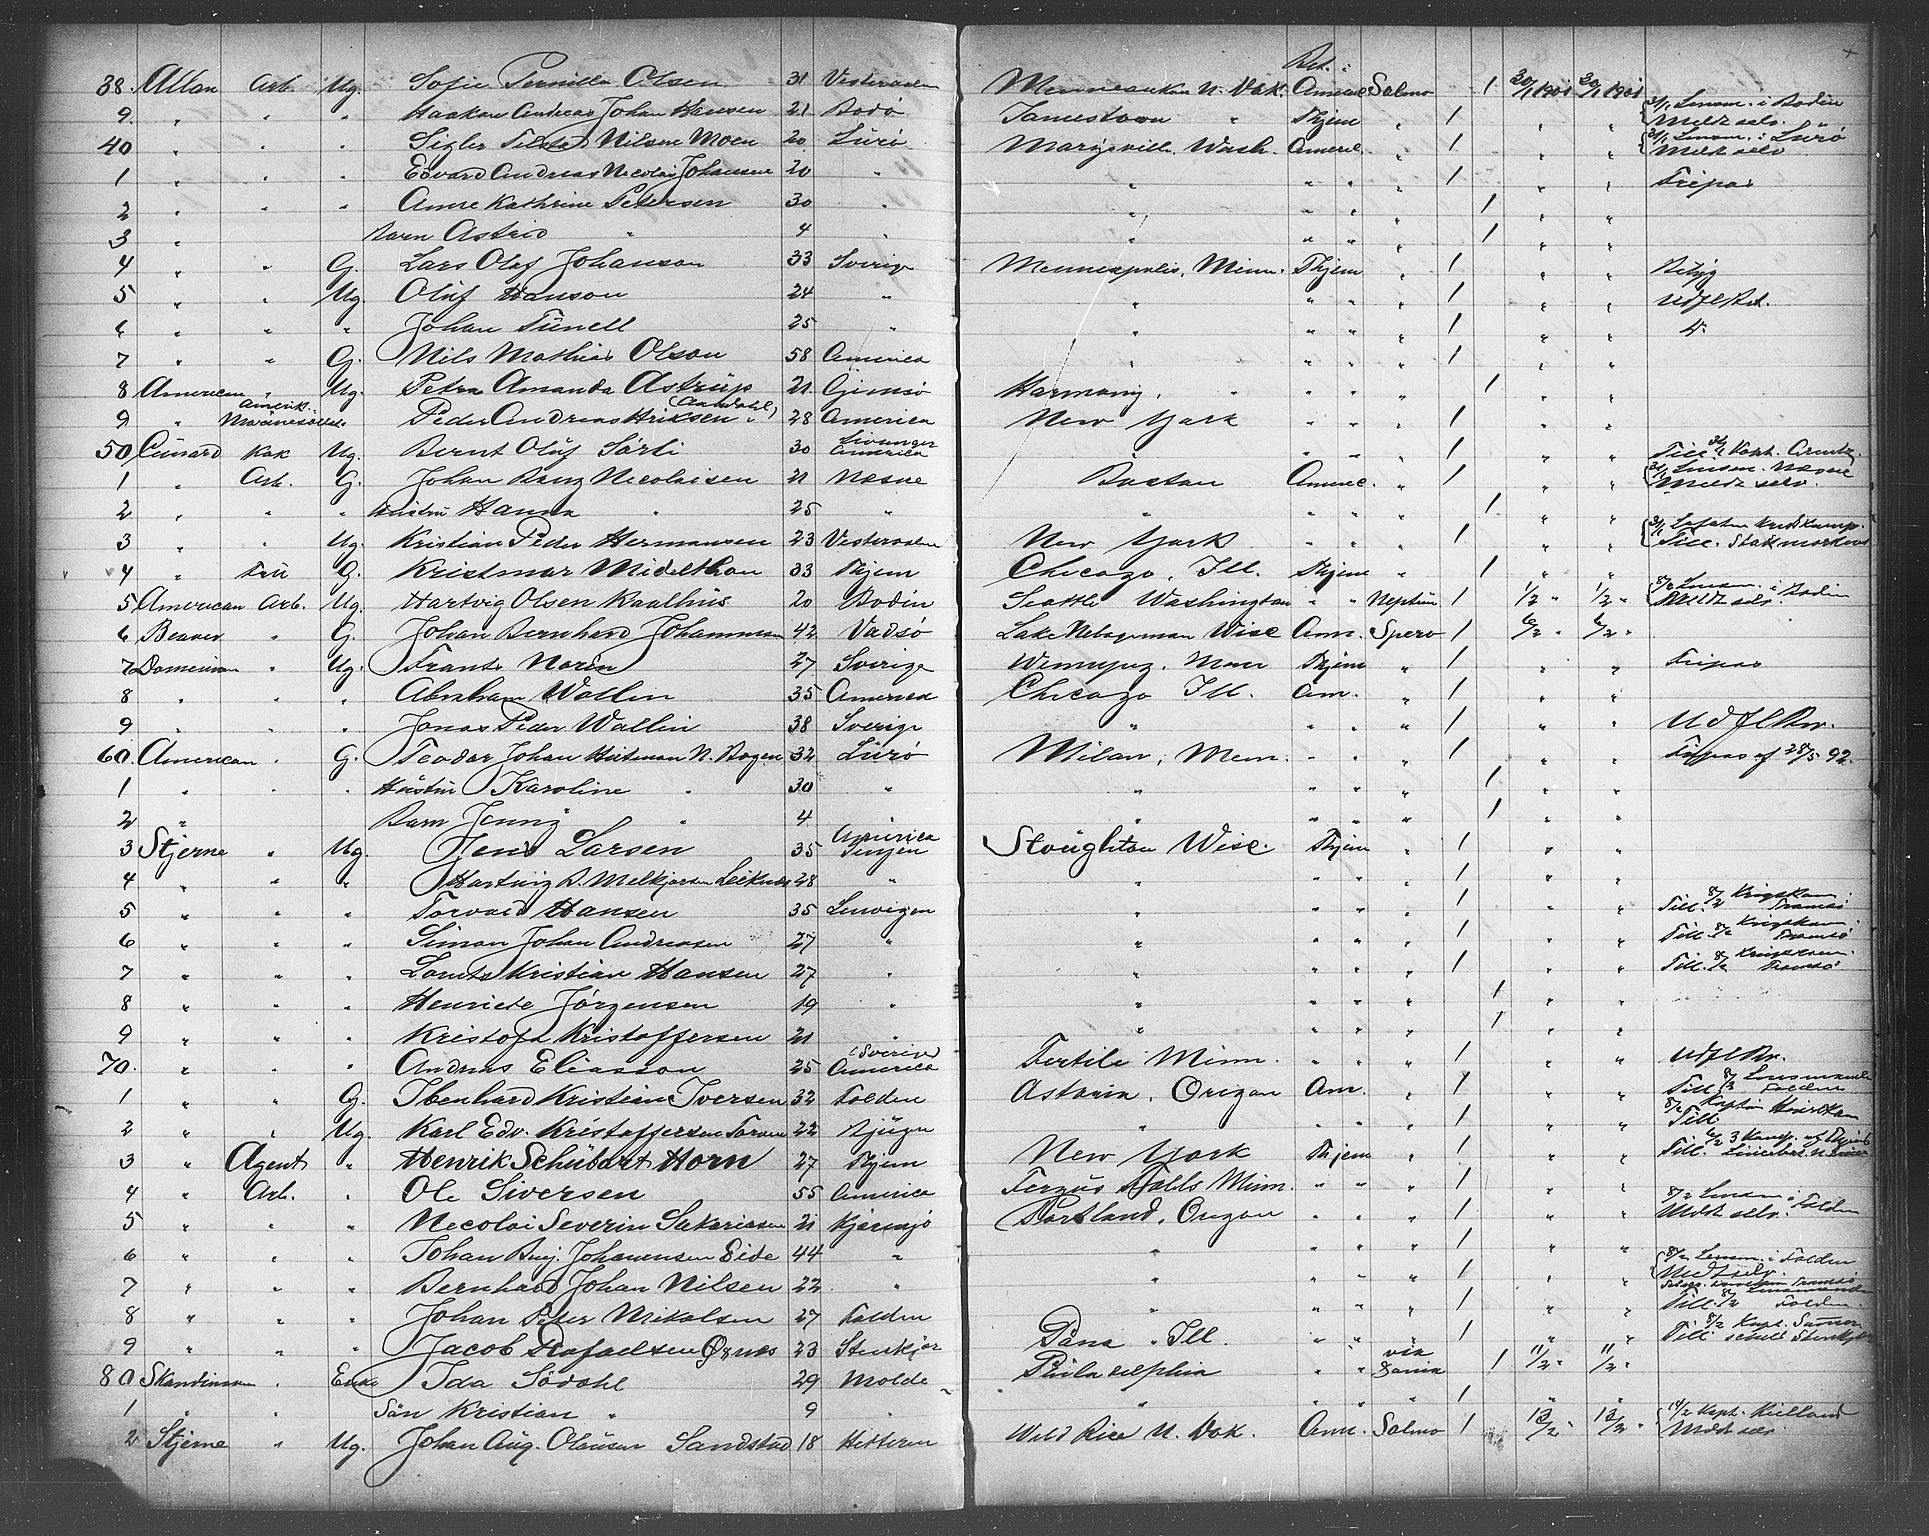 Bet.:
38. Allan Arb. Ug. Sofie Pernille Olsen 31 Vesteraalen Minnewaukan N. Dak. Americ Salmo 1 30/1 1901 30/1 1901
9 " " " Haakon Andreas Johan Hansen 21 Bodö Jamestown " Thjem " 1 " " 31/1 Lensm. i Bodin Meldt selv.
40 " " " Sigler Nilsen Moen 20 Lurö Marysville. Wash. Americ. " 1 " " 31/1 Lensm. i Lurö Meldt selv
1 " " " Edvard Andreas Nicolai Johansen 20 " " " " " 1 " " Fripas
2 " " " Anne Kathrine Petersen 30 " " " " " 1 " "
3 " Barn Astrid " 4 " " " " " 1 " "
4 " " G. Lars Olof Johanson 33 Sverige Menneapolis, Minn. Thjem " 1 " "
5 " " Ug. Oluf Hanson 24 " " " " " 1 " " Udfl Bet.
6 " " " Johan Tunell 25 " " " " " 1 " "
7 " " G. Nils Mathias Olson 58 America " " " " 1 " "
8 American " Ug. Petra Amanda Astrup 21 Gimsö Harmony, " " " " 1 " "
9 " Amerik. " Peder Andreas Hriksen (Aandahl) 28 America New York " " " 1 " "
50 Cunard Kok Ug. Bernt Oluf Sörli 30 Levanger America " " " " 1 " " Till.
1 " Arb. G. Johan Bang Nicolaisen 21 Nesne Boston Americ. " 1 " " 31/1 Lensm. Nesne Meldt selv.
2 " " " Hustru Hanna " 25 " " " " " 1 " "
3 " " Ug. Kristian Peder Hermansen 23 Vesteraalen New York " " " 1 " " 31/1 Till.
4 " Fru G. Kristmar Midelthon 33 Thjem Chicago, Ill. Thjem " 1 " "
5 American Arb. Ug. Hartvig Olsen Kaalhus 20 Bodin Seattle Washington " " Neptun 1 1/2 " 1/2 " 8/2 Lensm. i Bodin Meldt selv.
6 Beaver " G. Johan Bernhard Johannsen 42 Vadsö Lake Nebagaman Wisc Am. Spero 1 6/2 " 6/2 "
7 Dominion " Ug. Frants Norin 27 Sverige Winnipeg. Man Thjem " 1 " " Fripas
8 " " " Abraham Wallin 35 America Chicago Ill. Am. " 1 " "
9 " " " Jonas Peder Wallin 38 Sverige " " " " 1 " " Udfl Bev.
60. American " G. Teodor Johan Hartman N. Bogen 32 Lurö Milan, Menn. " " " 1 " " Fripas af 28/5 92.
1 " " " Hustru Karoline " 30 " " " " " 1 " "
2 " Barn Jenny " 4 " " " " " 1 " "
3 Stjerne " Ug. Jens Larsen 35 America Stoughton Wisc. Thjem " 1 " "
4 " " " Hartvig B. Melkjorsen Leiknes 28 " " " " " 1 " "
5 " " " Torvald Hansen 35 Lenvigen " " " " 1 " " Till. 8/2 Krigskom. Tromsö
6 " " " Simon Johan Andreasen 27 " " " " " 1 " " Till. 8/2 Krigskom. Tromsö
7 " " " Lorents Kristian Hansen 27 " " " " " 1 " " Till. 8/2 Krigskom. Tromsö
8 " " " Henriete Jörgensen 19 " " " " " 1 " "
9 " " " Kristofa Kristoffersen 21 " " " " " 1 " "
70. " " " Andreas Eliasson 25 (Sverige) America Fertile Minn. " " " 1 " " Udfl Bev.
1 " " G. Ibenhard Kristian Iversen 32 Folden Astoria, Origon Am. " 1 " " Till Lensmand Folden
2 " " Ug. Karl Edv. Kristoffersen 22 Bjugn " " " " 1 " " Till.
3 " Agent " Henrik Schubart Horn 27 Thjem New York Thjem " 1 " " Till.
4 " Arb. " Ole Siversen 55 America Fergus Falls Minn. " " " 1 " "
5 " " " Necolai Severin Sakariasen 21 Kjæringö Portland, Origon " " " 1 " " 8/2 Lensm. i Folden Meldt selv.
6 " " " Johan Benj. Johannesen Eide 44 " " " " " 1 " "
7 " " " Bernhard Johan Nilsen 22 " " " " " 1 " " 8/2 Lensm. i Folden Meldt selv.
8 " " " Johan Peter Nikolsen 27 Folden " " " " 1 " " Till. 8/2 Lensmand Folden.
9 " " " Jacob Rafaelsen Öynes 23 Stenkjær Pana " Ill. " " " 1 " " Till 8/2 Kapt. Stenkjær
80 Skandinavien " Enke Ida Södahl 29 Molde Philadelphia " " via Dania 1 11/2 " 11/2 "
1 " " Sön Kristian " 9 " " " " " 1 " "
2 Stjerne " Ug. Johan Aug. Olausen Sandstad 18 Hitteren Wild Rice N. Dak. Am. Salmo 1 13/2 " 13/2 " 14/2 Kapt. Kielland Meldt selv